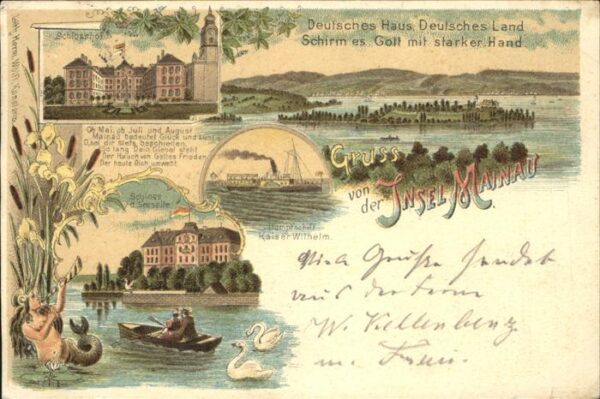 Deutsches Haus, Deutsches Land
Schirm es Gott mit starker Hand.
Schlosshof.
Ob Mai, ob Juli und August
Mainau bedeutet Glück und Lust
O, sei dir stets beschieden,
So lang Dein Giebel steht
Der Hauch von Gottes Frieden
Der heute Dich umweht.
Gruss
von
der Insel Mainau.
Dampfschiff
Kaiser Wilhelm.
Schloss
v. d. Seeseite
Viele Grüße sendet
aus der Ferne
W. Kellenbenz